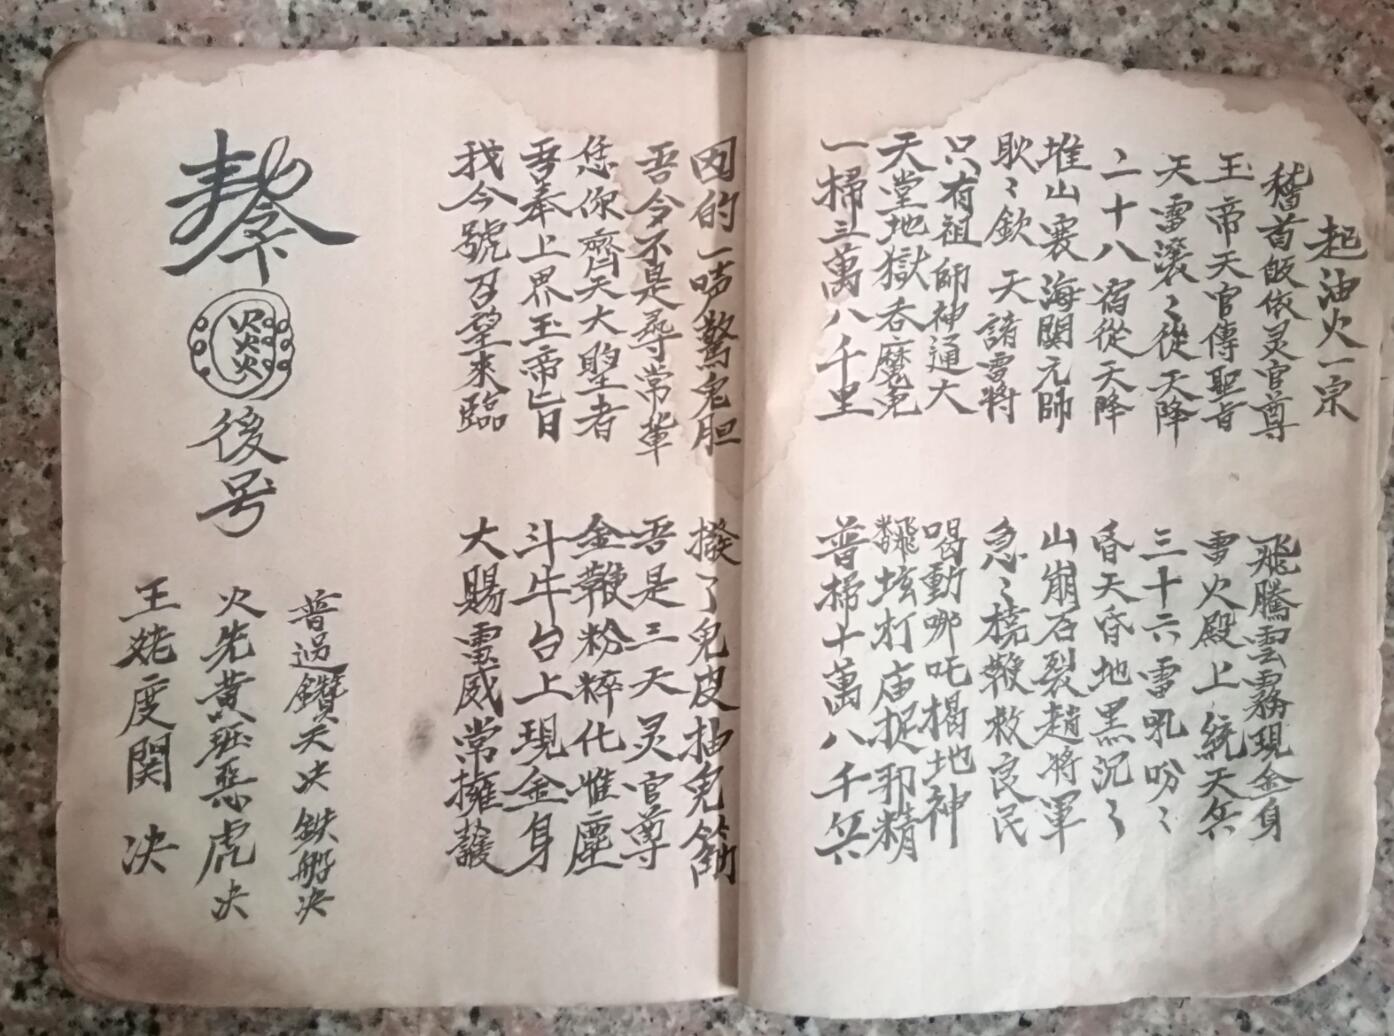 起油火一宗
稽首皈依灵官尊 飛騰雲霧現金身
玉帝天官傳聖旨 雷火殿上統天兵
天雷滚〻從天降 三十六雷吼吩〻
二十八宿從天降 昏天昏地黑沉〻
堆山裹海関元帥 山崩石裂趙將軍
耿〻欽天諸雷將 急〻撓鞭救良民
只有祖師神通大 喝動哪吒揭地神
天堂地獄吞魔鬼 飜坛打庙捉邪精
一掃三萬八千里 普掃十萬八千兵
囡的一声驚鬼胆 撥了鬼皮抽鬼筋
吾令不是尋常輩 吾是三天灵官尊
恁你齊天大聖者 金鞭粉粹化惟塵
吾奉上界玉帝旨 斗牛台上現金身
我今號召望來臨 大賜雷威常擁護
火火火火
後号
普過鑽天决 鉄船决
火先黄班惡虎决
王姥度関 决